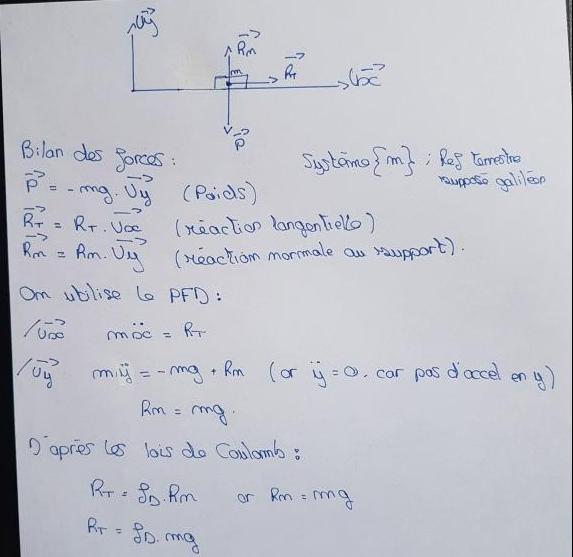 Uy
Rm
m
RT
Ux
P
Bilan des forces :
Système {m} ; Ref terrestre
supposé galiléen
P = -mg . Uy (Poids)
RT = RT . Ux (réaction tangentielle)
Rm = Rm . Uy (réaction normale au support).
On utilise le PFD :
/Ux mẍ = RT
/Uy mÿ = -mg + Rm (or ÿ = 0. car pas d'accel en y)
Rm = mg.
D'après les lois de Coulomb :
RT = fD . Rm or Rm = mg
RT = fD . mg